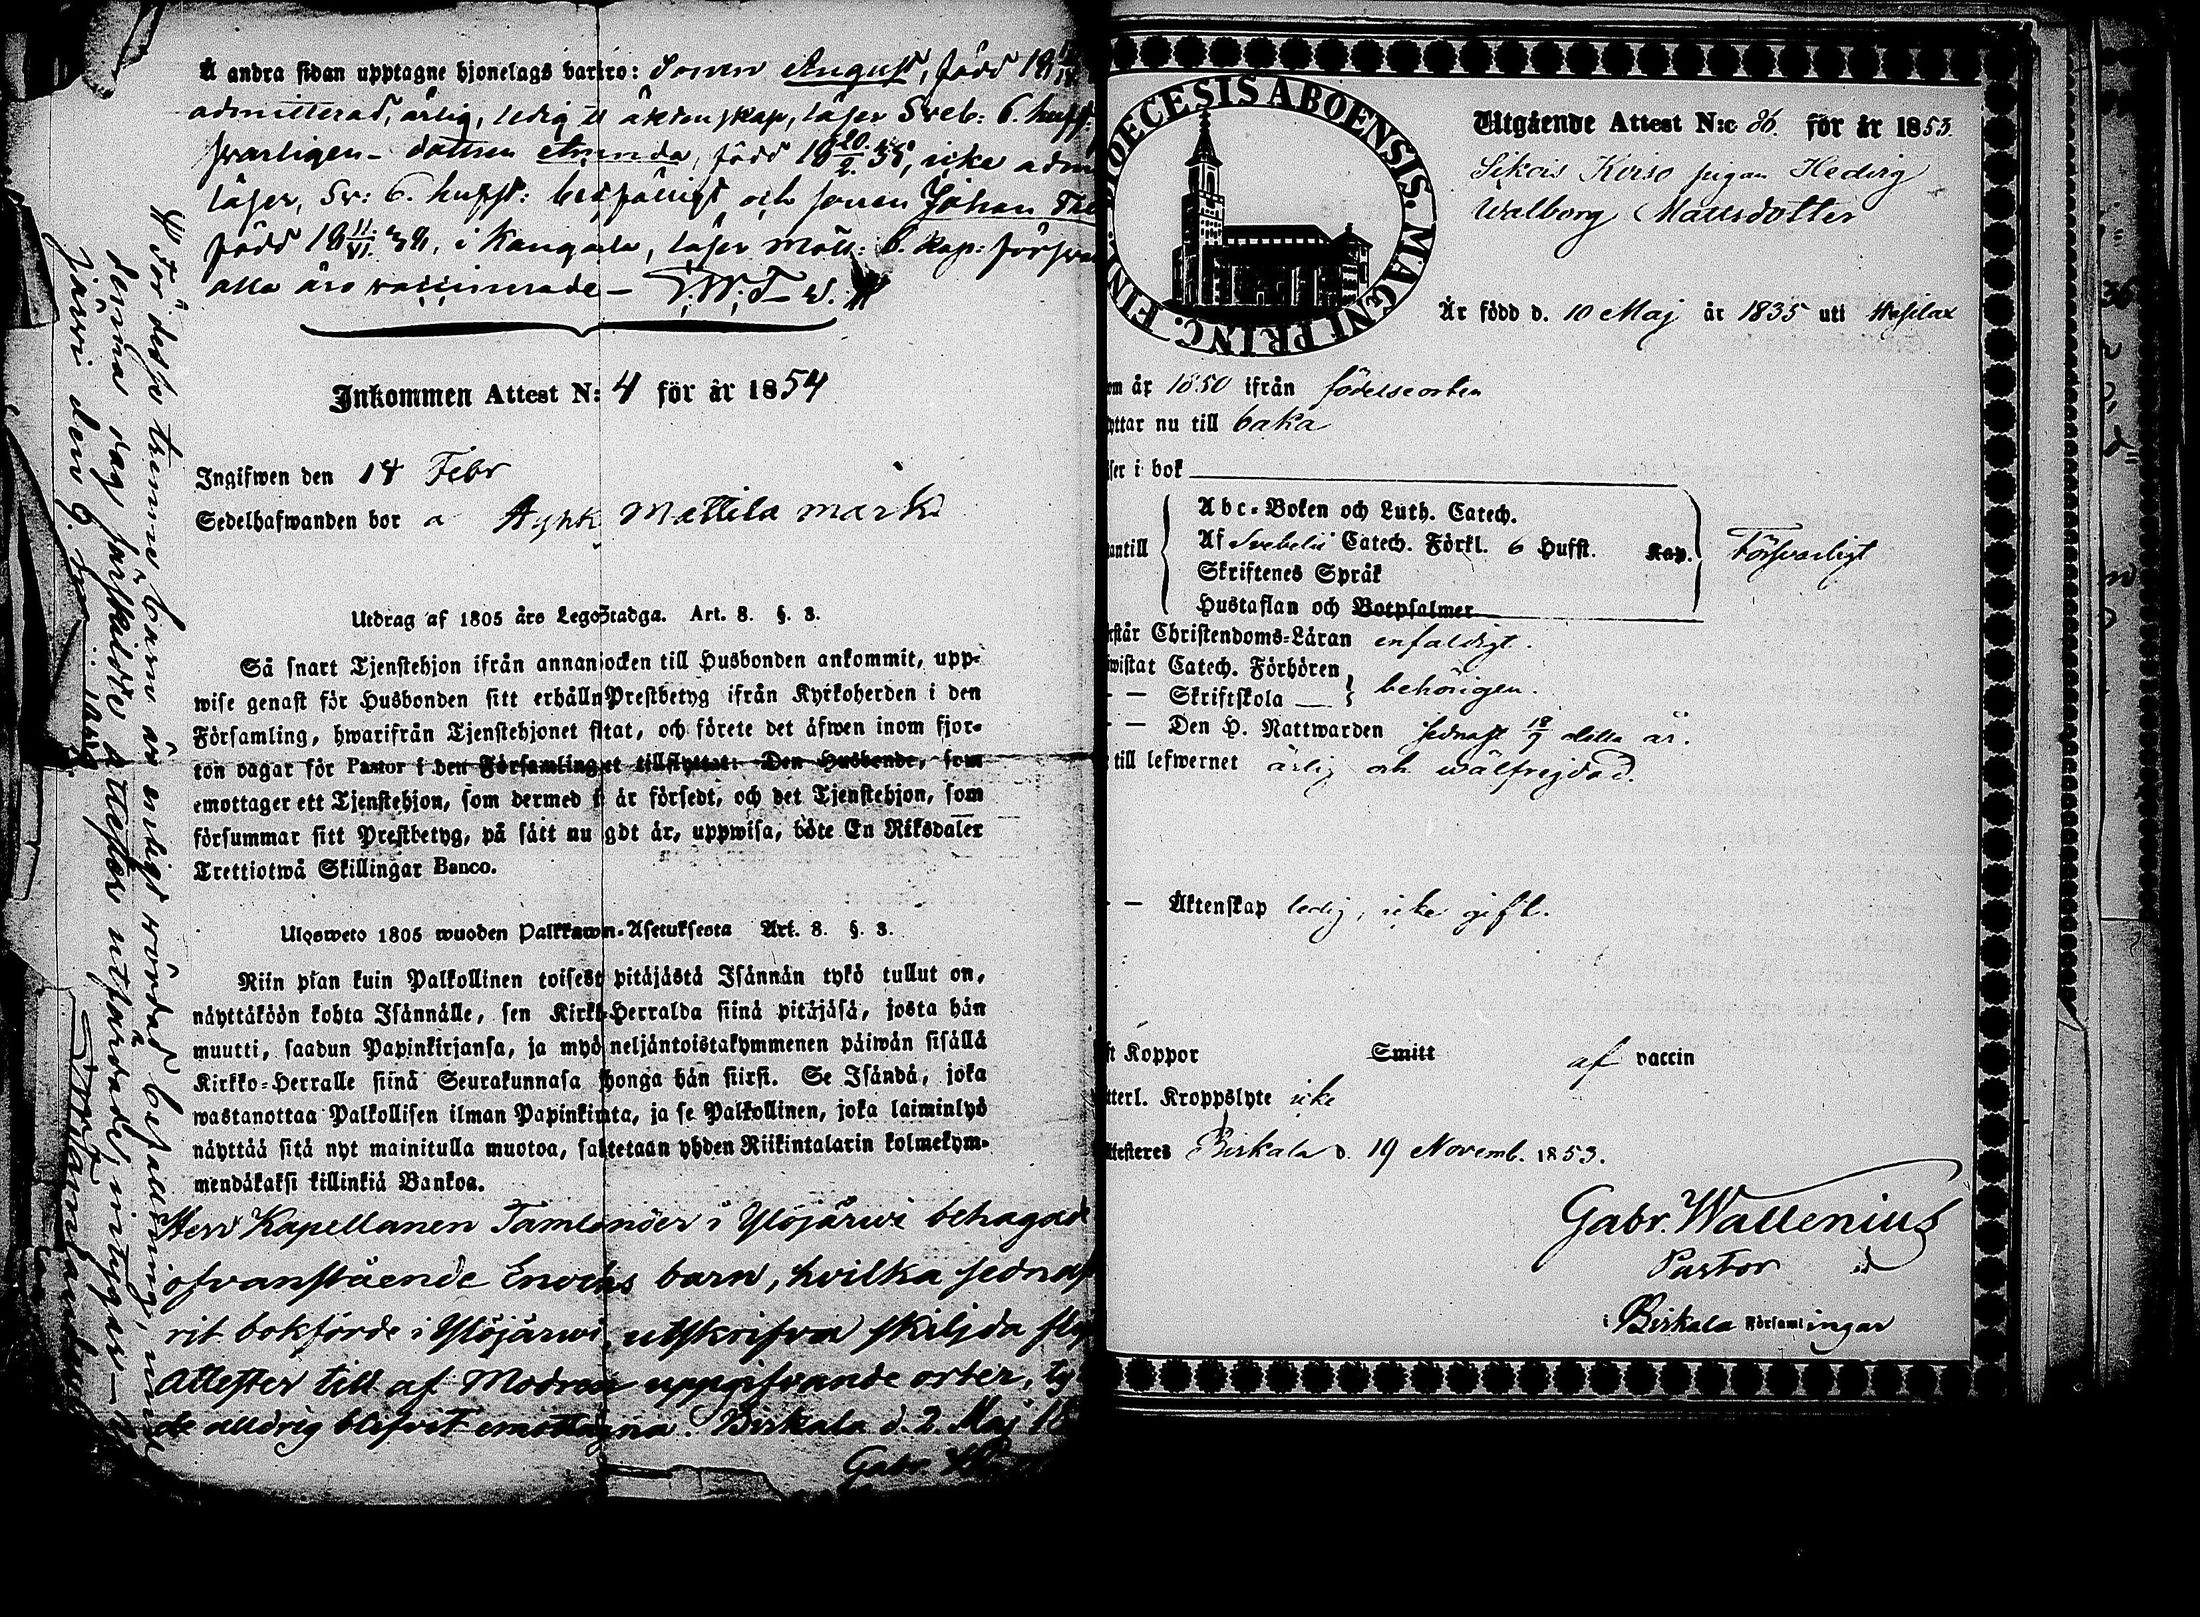 Å andra sidan upptagne hjonelags barn: Sonen August, född 18
admitterad, ärlig, ledig til äktenskap, läser Sveb: 6. hufst:
svarligen – dottren Amanda, född 18 20/2 35, icke adm
läser, Sv: 6. hufst: berfälligt och sonen Johan
född 18 11/VI 39, i Kangala, läser Möll: 6. kap: försva
alla äro vaccinerade –
Inkommen Attest N: 4 för år 1854
Ingifwen den 14 Febr
Sedelhafwanden bor å Mattila mark
Utdrag af 1805 års LegoStadga. Art. 8. §. 3.
Så snart Tjenstehjon ifrån annan socken till Husbonden ankommit, upp-
wise genast för Husbonden sitt erhålln Prestbetyg ifrån Kyrkoherden i den
Församling, hwarifrån Tjenstehjonet flytat, och förete det äfwen inom fjor-
ton dagar för Pastor i den Församling det tillflyttat: Den Husbonde, som
emottager ett Tjenstehjon, som dermed är försedt, och det Tjenstehjon, som
försummar sitt Prestbetyg, på sätt nu sagdt är, uppwisa, böte En Riksdaler
Trettiotwå Skillingar Banco.
Ulosweto 1805 wuoden Palkkawn-Asetuksesta Art. 8. §. 3.
Niin pian kuin Palkollinen toisest pitäjästä Isännän tykö tullut on,
näyttäköön kohta Isännälle, sen Kirkk-Herralda siinä pitäjäsä, josta hän
muutti, saadun Papinkirjansa, ja myö neljäntoistakymmenen päiwän sisällä
Kirkko-Herralle siinä Seurakunnasa jhonga hän siirsi. Se Isändä, joka
wastanottaa Palkollisen ilman Papinkirjata, ja se Palkollinen, joka laiminlyö
näyttää sitä nyt mainitulla muotoa, saktetaan yhden Riikintalarin kolmekym-
mendäkaksi killinkiä Bankoa.
Herr Kapellanen Tamlander i Ylöjärwi behagade
ofvanstående Enochs barn, hvilka sednast
rit bokförde i Ylöjärwi, utskrifva skiljda fly
Attester till af Modren uppgifvande orter, ty
de alldrig blifvit emottagna. Birkala d. 2. Maj 18
Gabr. W
För desse trenne barn är enligt vördad befallning,
denna dag särskildte Attester utfärdade, intygar –
järvi den 9. Maj
Utgående Attest N:o 86. för år 1853.
Sikais Keiso pigan Hedvig
Walborg Mattsdotter
Är född d. 10 Maj år 1835 uti Wesilax
om år 1850 ifrån födelseorten
yttar nu till baka
ser i bok
antill
Abc-Boken och Luth. Catech.
Af Svebelii Catech. Förkl. 6 Hufst. Kap.
Skriftenes Språk
Hustaflan och Botpsalmer
Försvarligt
rstår Christendoms-Läran enfaldigt.
wistat Catech. Förhören
– – Skriftskola
behörigen.
– – Den H. Nattwarden sednast 18/9 detta år.
till lefwernet ärlig och wälfrejdad.
– – Äktenskap ledig, icke gift.
ft Koppor Smitt af vaccin
tterl. Kroppslyte icke
ttesteres Birkala d. 19 Novemb. 1853.
Gabr. Wallenius
Pastor
i Birkala Församlingar
DIOECESIS ABOENSIS. MAGNI PRINC. FINL.